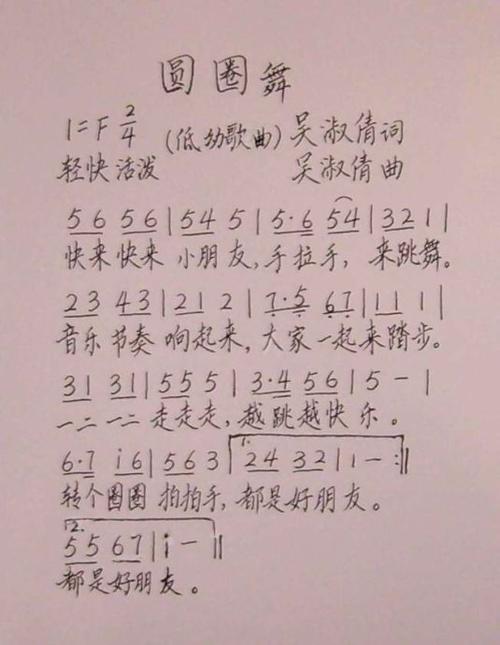 圆圈舞
1=F 2/4 (低幼歌曲) 吴淑倩词
轻快活泼 吴淑倩曲
56 56|54 5|5·6 54|321|
快来快来 小朋友,手拉手, 来跳舞。
23 43|21 2|7·5 67|11 1|
音乐节奏 响起来,大家一起来踏步。
31 31|55 5|3·4 56|5 -|
一二一二 走走走,越跳越快乐。
6·7 i6|56 3|1. 24 32|1 - :‖
转个圈圈 拍拍手,都是好朋友。
2. 55 67|i - ‖
都是好朋友。